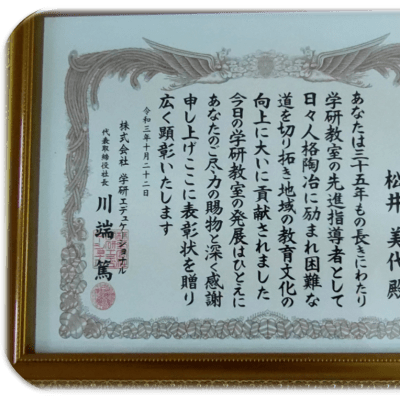 松井 美代 殿
あなたは三十五年もの長きにわたり
学研教室の先進指導者として
日々人格陶冶に励まれ困難な
道を切り拓き地域の教育文化の
向上に大いに貢献されました
今日の学研教室の発展はひとえに
あなたのご尽力の賜物と深く感謝
申し上げここに表彰状を贈り
広く顕彰いたします
令和三年十月二十二日
株式会社 学研エデュケーショナル
代表取締役社長 川端 篤